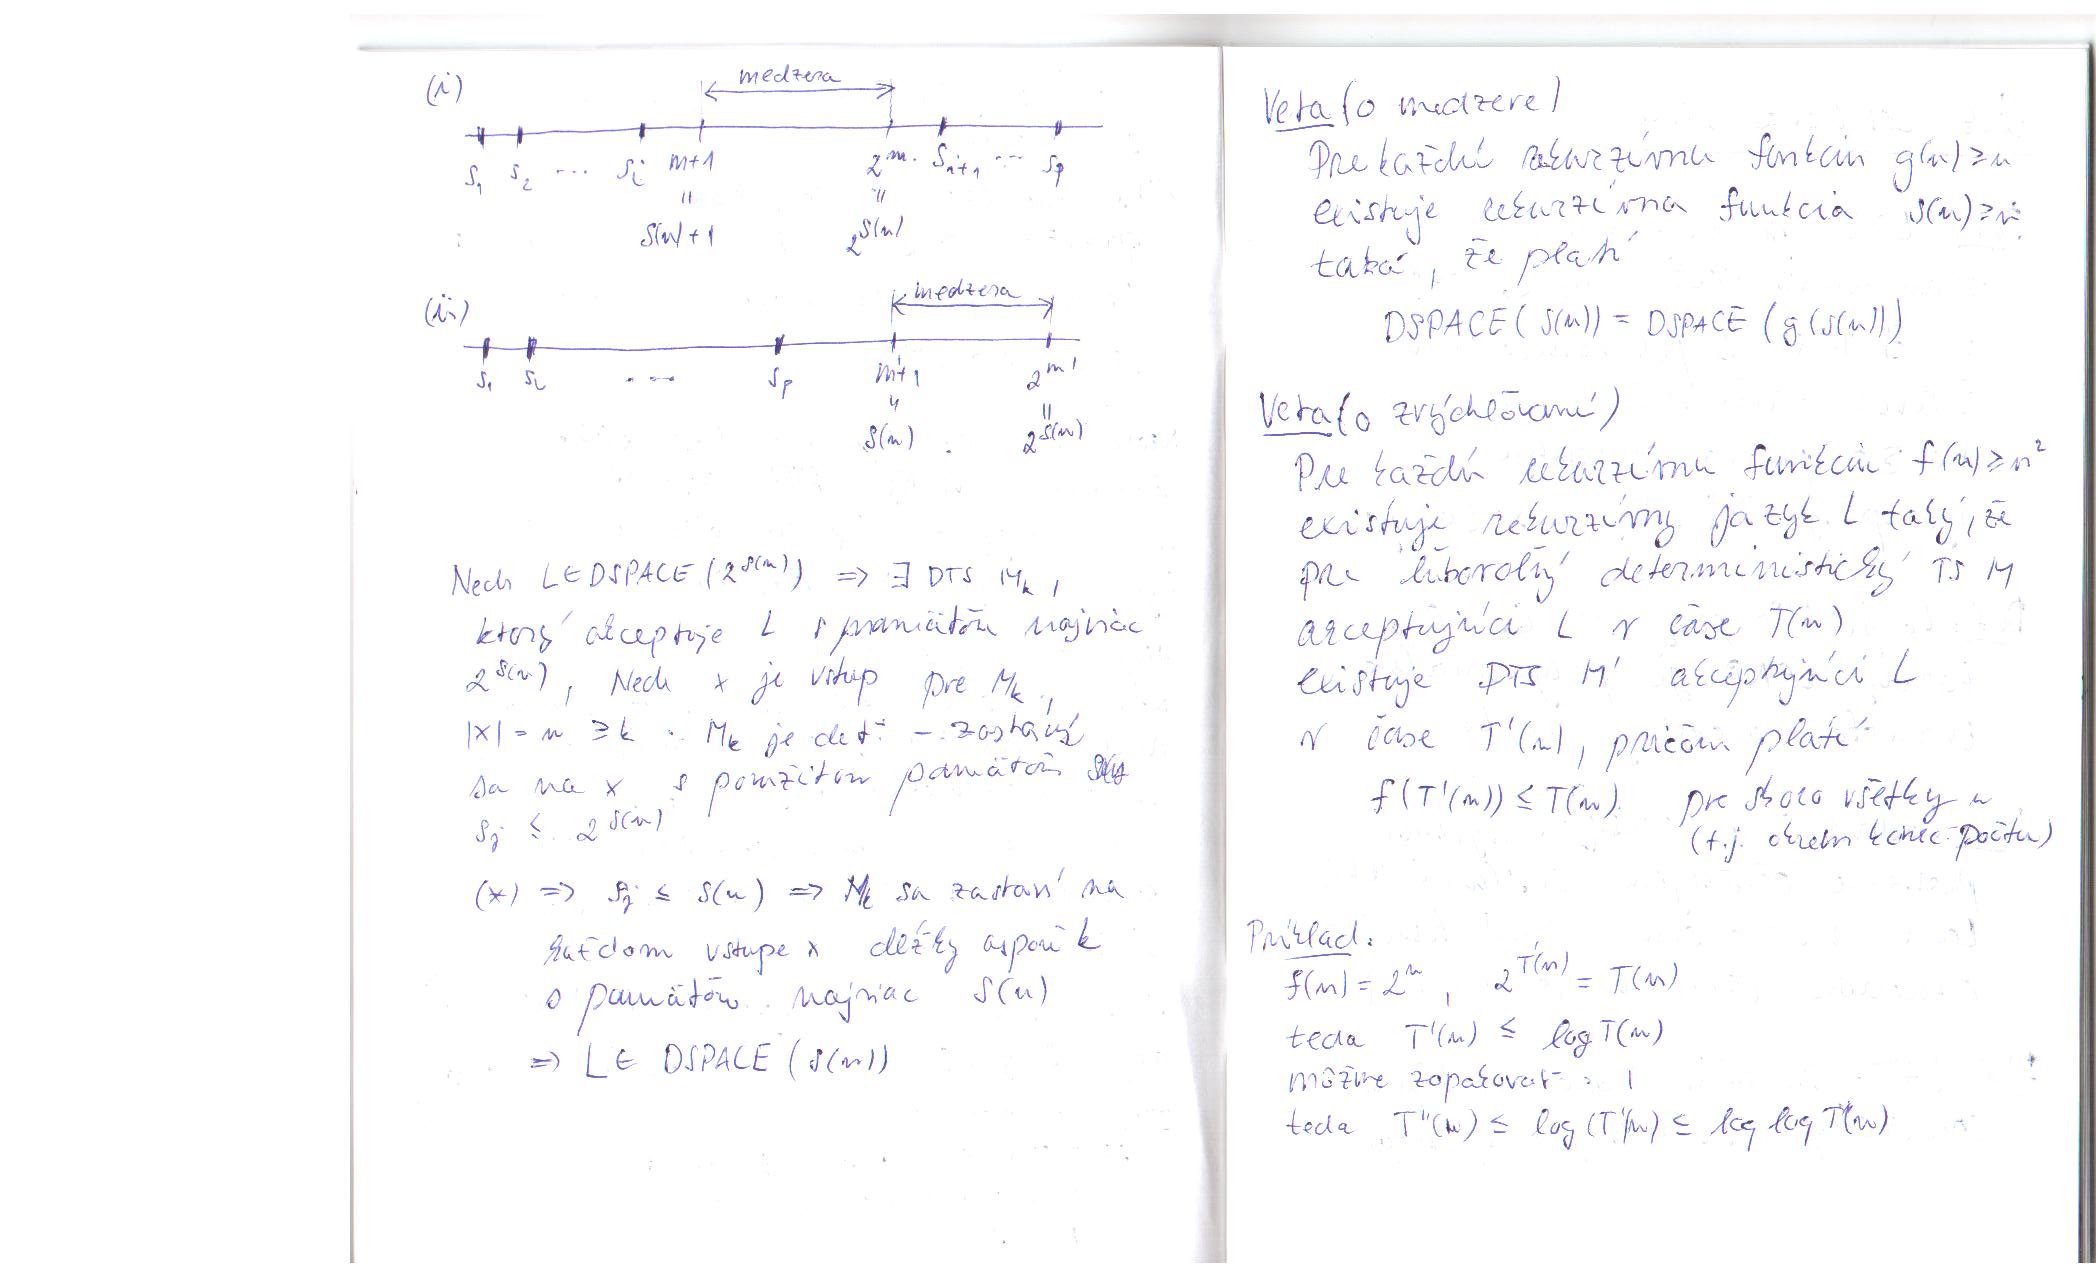 (i)
medzera
s₁ s₂ ... sᵢ m+1 2^m sᵢ₊₁ ... sₚ
= =
S(n)+1 2^S(n)
(ii)
medzera
s₁ s₂ ... sₚ m'+1 2^m'
S(n) 2^S(n)
Nech L∈DSPACE(2^S(n)) => ∃ DTS Mₖ,
ktorý akceptuje L s pamäťou najviac
2^S(n), Nech x je vstup pre Mₖ,
|x| = n ≥ k . Mₖ je det. – zastaví
sa na x s použitou pamäťou
sⱼ ≤ 2^S(n)
(*) => sⱼ ≤ S(n) => Mₖ sa zastaví na
každom vstupe x dĺžky aspoň k
s pamäťou najviac S(n)
=> L ∈ DSPACE (S(n))
Veta (o medzere)
Pre každú rekurzívnu funkciu g(n) ≥ n
existuje rekurzívna funkcia S(n) ≥ n
taká, že platí
DSPACE(S(n)) = DSPACE(g(S(n)))
Veta (o zrýchľovaní)
Pre každú rekurzívnu funkciu f(n) ≥ n²
existuje rekurzívny jazyk L taký, že
pre ľubovoľný deterministický TS M
akceptujúci L v čase T(n)
existuje DTS M' akceptujúci L
v čase T'(n), pričom platí
f(T'(n)) ≤ T(n) pre skoro všetky n
(t.j. okrem koneč. počtu)
Príklad:
f(n) = 2^n, 2^T'(n) = T(n)
teda T'(n) ≤ log T(n)
môžme zopakovať
teda T''(n) ≤ log(T'(n) ≤ log log T(n)